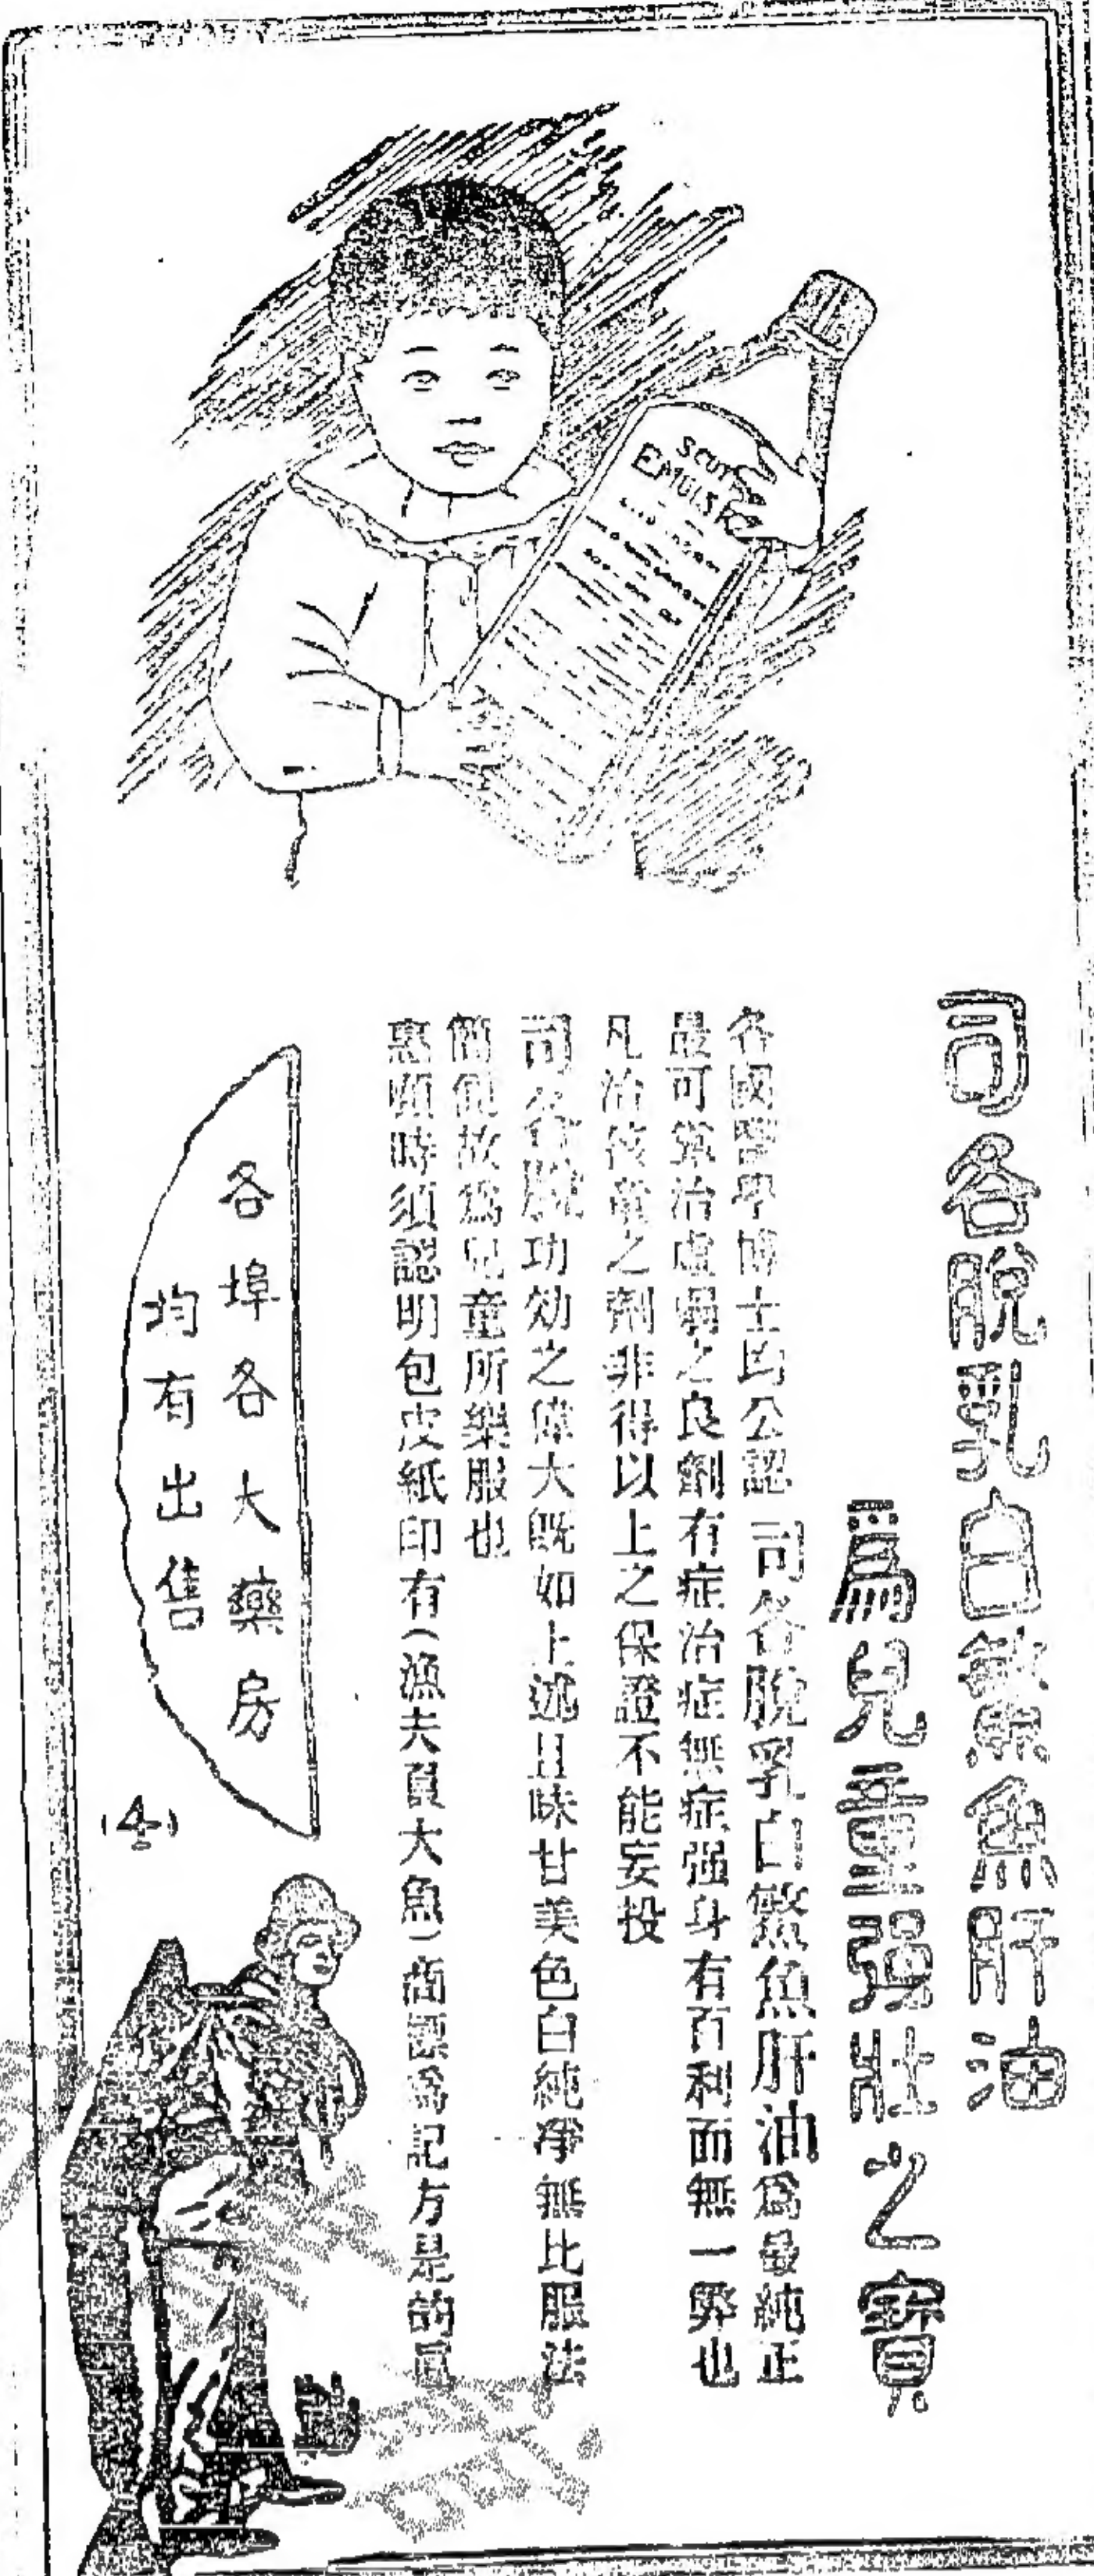 司各脫乳白鰵魚肝油
爲兒童强壯之寶
各國醫學博士均公認司各脫乳白鰵魚肝油爲最純正
最可靠治虛弱之良劑有症治症無症强身有百利而無一弊也
凡治孩童之劑非得以上之保證不能妄投
司各脫功効之偉大旣如上述且味甘美色白純凈無比服法
簡便故爲兒童所樂服也
惠顧時須認明包皮紙印有(漁夫負大魚)商標爲記方是的眞
各埠各大藥房
均有出售
(4)
SCOTT
EMULS